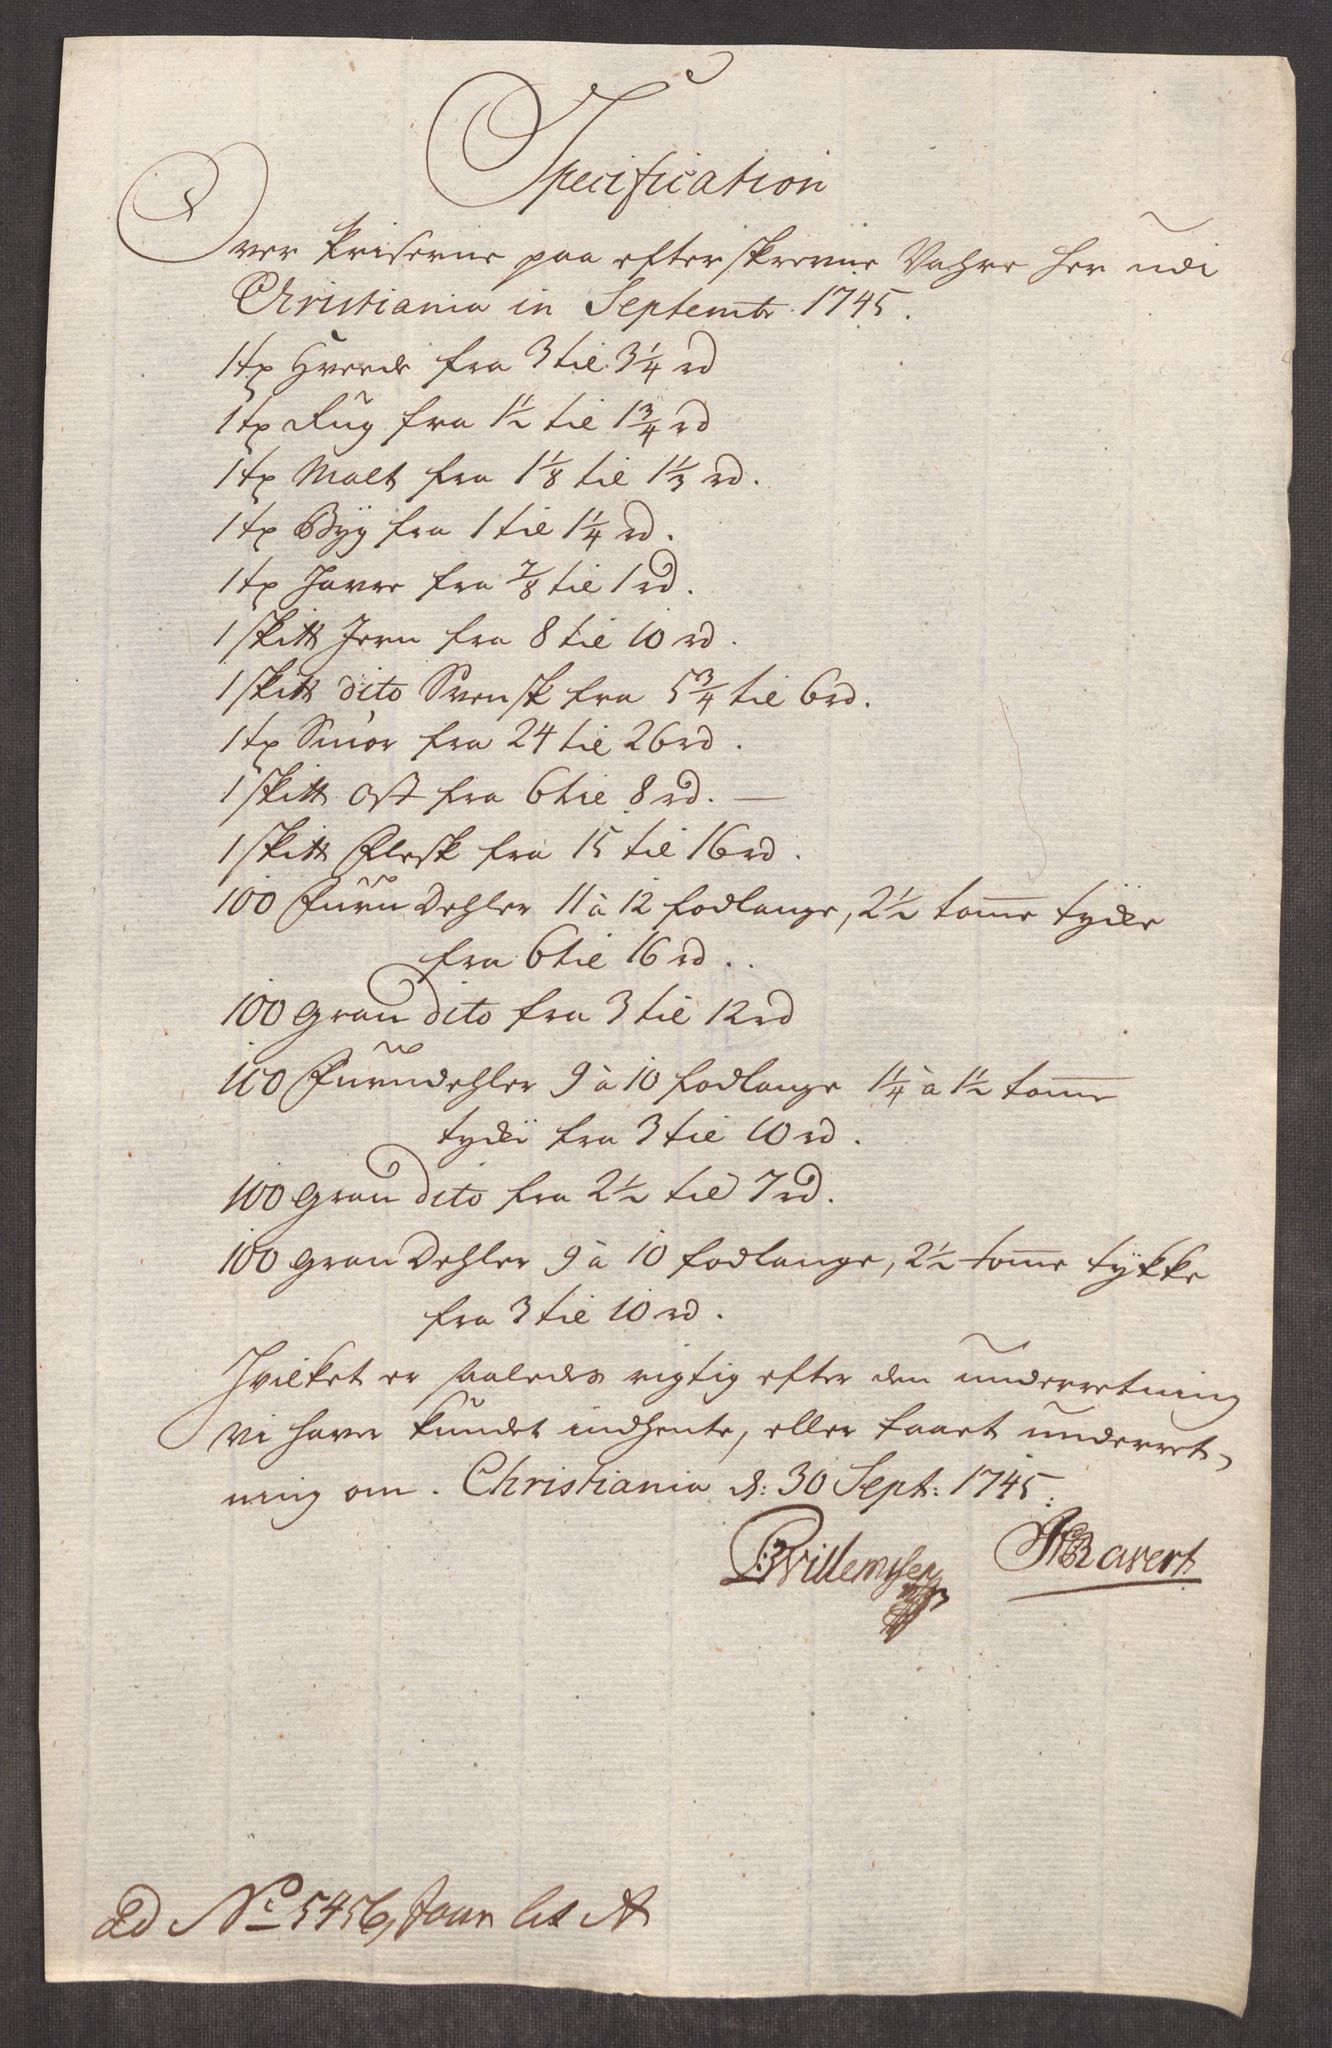 Specification
Over Priserne paa efterskrevne Vahre her udi
Christiania in Septembr. 1745.
1 tø Hvede fra 3 til 3 1/4 rd
1 tø Rug fra 1 1/2 til 1 3/4 rd
1 tø Malt fra 1 1/8 til 1 1/3 rd.
1 tø Byg fra 1 til 1 1/4 rd.
1 tø Havre fra 7/8 til 1 rd.
1 skitt Jern fra 8 til 10 rd.
1 skitt dito Svensk fra 5 3/4 til 6 rd.
1 tø Smör fra 24 til 26 rd.
1 skitt Ost fra 6 til 8 rd. —
1 skitt Flesk fra 15 til 16 rd.
100 Furu Dehler 11 à 12 fodlange, 2 1/2 tomme tyde
fra 6 til 16 rd.
100 gran dito fra 3 til 12 rd
100 Furudehler 9 à 10 fodlange 1 1/4 à 1 1/2 tomme
tyde fra 3 til 10 rd.
100 gran dito fra 2 1/2 til 7 rd.
100 gran Dehler 9 à 10 fodlange, 2 1/2 tomme tykke
fra 3 til 10 rd.
Hvilket er saaledes rigtig efter den underretning
vi haver kundet indhente, eller faaet underret-
ning om. Christiania d: 30 Sept: 1745.
Willemsen Ravert
ad No 5456, Four lit A